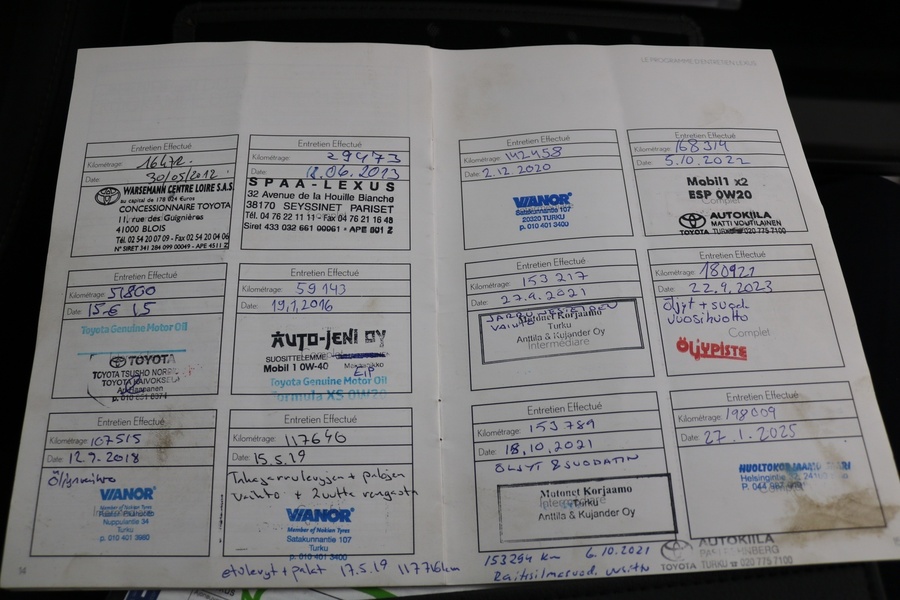 LE PROGRAMME D'ENTRETIEN LEXUS
Entretien Effectué
Kilométrage: 16472.
Date: 30/05/2012
WARSEMANN CENTRE LOIRE S.A.S
au capital de 178 024 Euros
CONCESSIONNAIRE TOYOTA
11, rue des Guignières
41000 BLOIS
Tél. 02 54 20 07 09 - Fax 02 54 20 04 06
N° SIRET 341 284 099 00049 - APE 4511 Z
Entretien Effectué
Kilométrage: 29473
Date: 12.06.2013
SPAA-LEXUS
32 Avenue de la Houille Blanche
38170 SEYSSINET PARISET
Tél. 04 76 22 11 11 - Fax 04 76 21 16 48
Siret 433 032 661 00061 - APE 501 Z
Entretien Effectué
Kilométrage: 51800
Date: 15.6 15
Toyota Genuine Motor Oil
TOYOTA
TOYOTA TSUSHO
TOYOTA KAIVOKSELA
Entretien Effectué
Kilométrage: 59143
Date: 19.1.2016
AUTO-JENI OY
SUOSITTELEMME
Mobil 1 0W-40
EIP
Toyota Genuine Motor Oil
Formula XS 0W20
Entretien Effectué
Kilométrage: 107515
Date: 12.9.2018
Öljynvaihto
VIANOR
Nuppulantie 34
Turku
p. 010 401 3660
Entretien Effectué
Kilométrage: 117646
Date: 15.5.19
Takajarrulevyjen + palojen
vaihto + 2 uutta rengasta
VIANOR
Member of Nokian Tyres
Satakunnantie 107
Turku
p. 010 401 3400
etulevyt + palat 17.5.19 117716km
54
Entretien Effectué
Kilométrage: 142458
Date: 2.12.2020
VIANOR
Satakunnantie 107
20320 TURKU
p. 010 401 3400
Entretien Effectué
Kilométrage: 168314
Date: 5.10.2022
Mobil1 x2
ESP 0W20
Complet
AUTOKIILA
MATTI VOUTILAINEN
TOYOTA TURKU 020 775 7100
Entretien Effectué
Kilométrage: 153217
Date: 27.9.2021
Matonet Korjaamo
Turku
Anttila & Kujander Oy
Intermédiaire
Entretien Effectué
Kilométrage: 180921
Date: 22.9.2023
Öljyt + suod.
vuosihuolto
Complet
ÖLJYPISTE
Entretien Effectué
Kilométrage: 153789
Date: 18.10.2021
ÖLJYT & SUODATIN
Matonet Korjaamo
Turku
Anttila & Kujander Oy
153294 km 6.10.2021
Entretien Effectué
Kilométrage: 198009
Date: 27.1.2025
HUOLTOKORJAAMO
Helsingintie
P. 044
AUTOKIILA
TOYOTA TURKU 020 775 7100